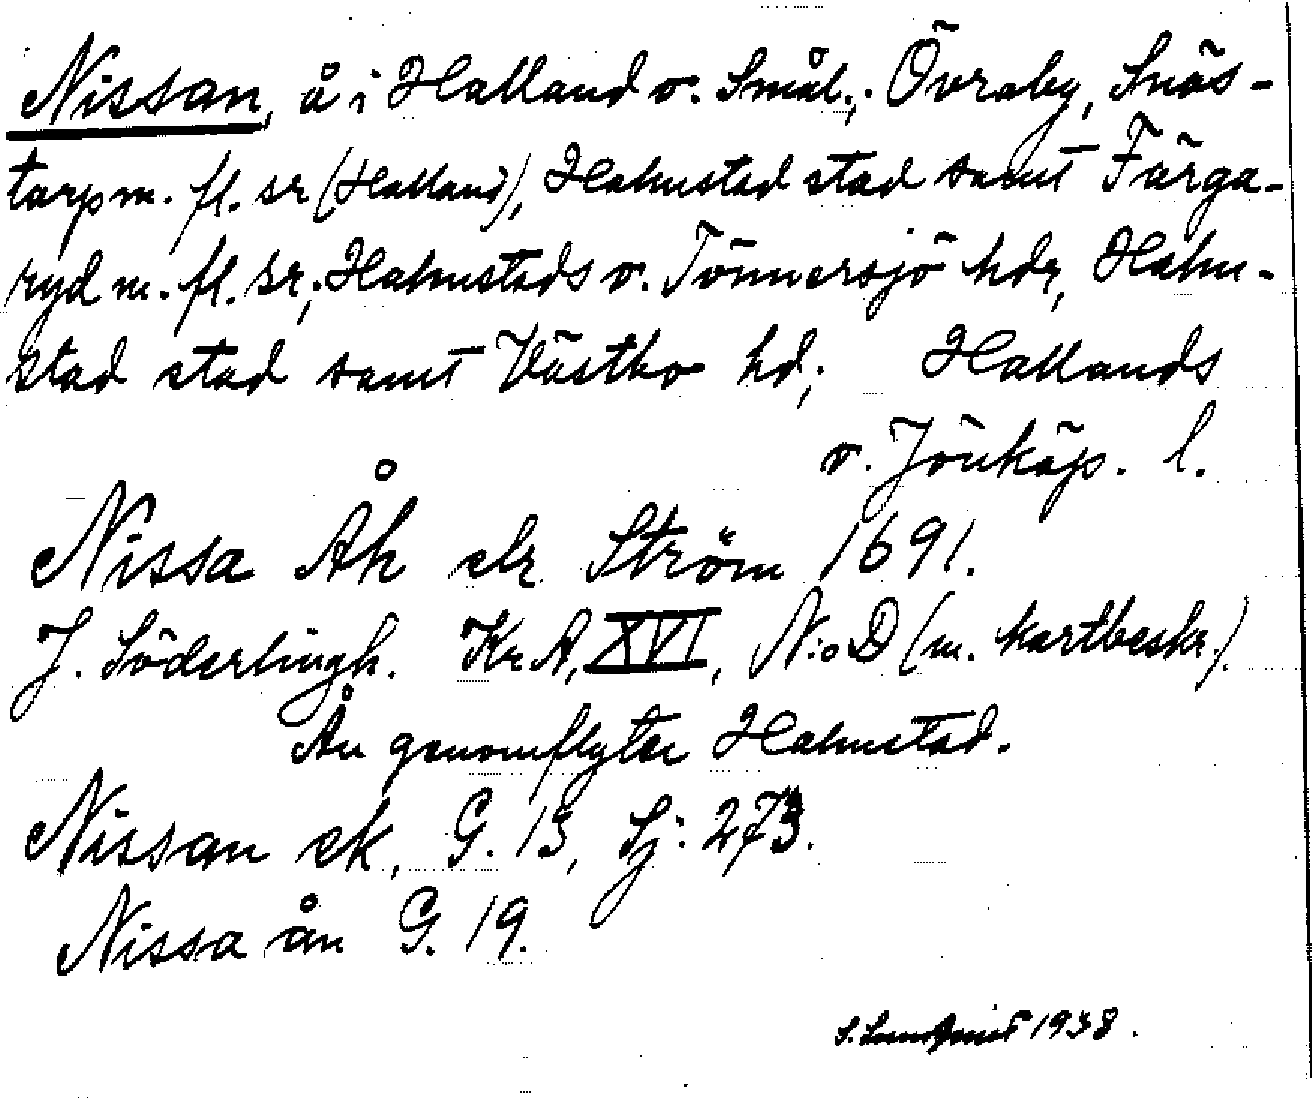 Nissan, å i Halland o. Smål.; Övraby, Snös-
tarp m. fl. sr (Halland), Halmstad stad samt Färga-
ryd m. fl. sr; Halmstads o. Tönnersjö hdr, Halm-
stad stad samt Västbo hd; Hallands
o. Jönköp. l.
Nissa Åh elr Ström 1691.
J. Söderlingh. Kr. A, XVI, N:o D (m. kartbeskr.)
Ån genomflyter Halmstad.
Nissan ek. G. 13, Lj: 273.
Nissa ån G. 19.
S. Lundqvist 1938.